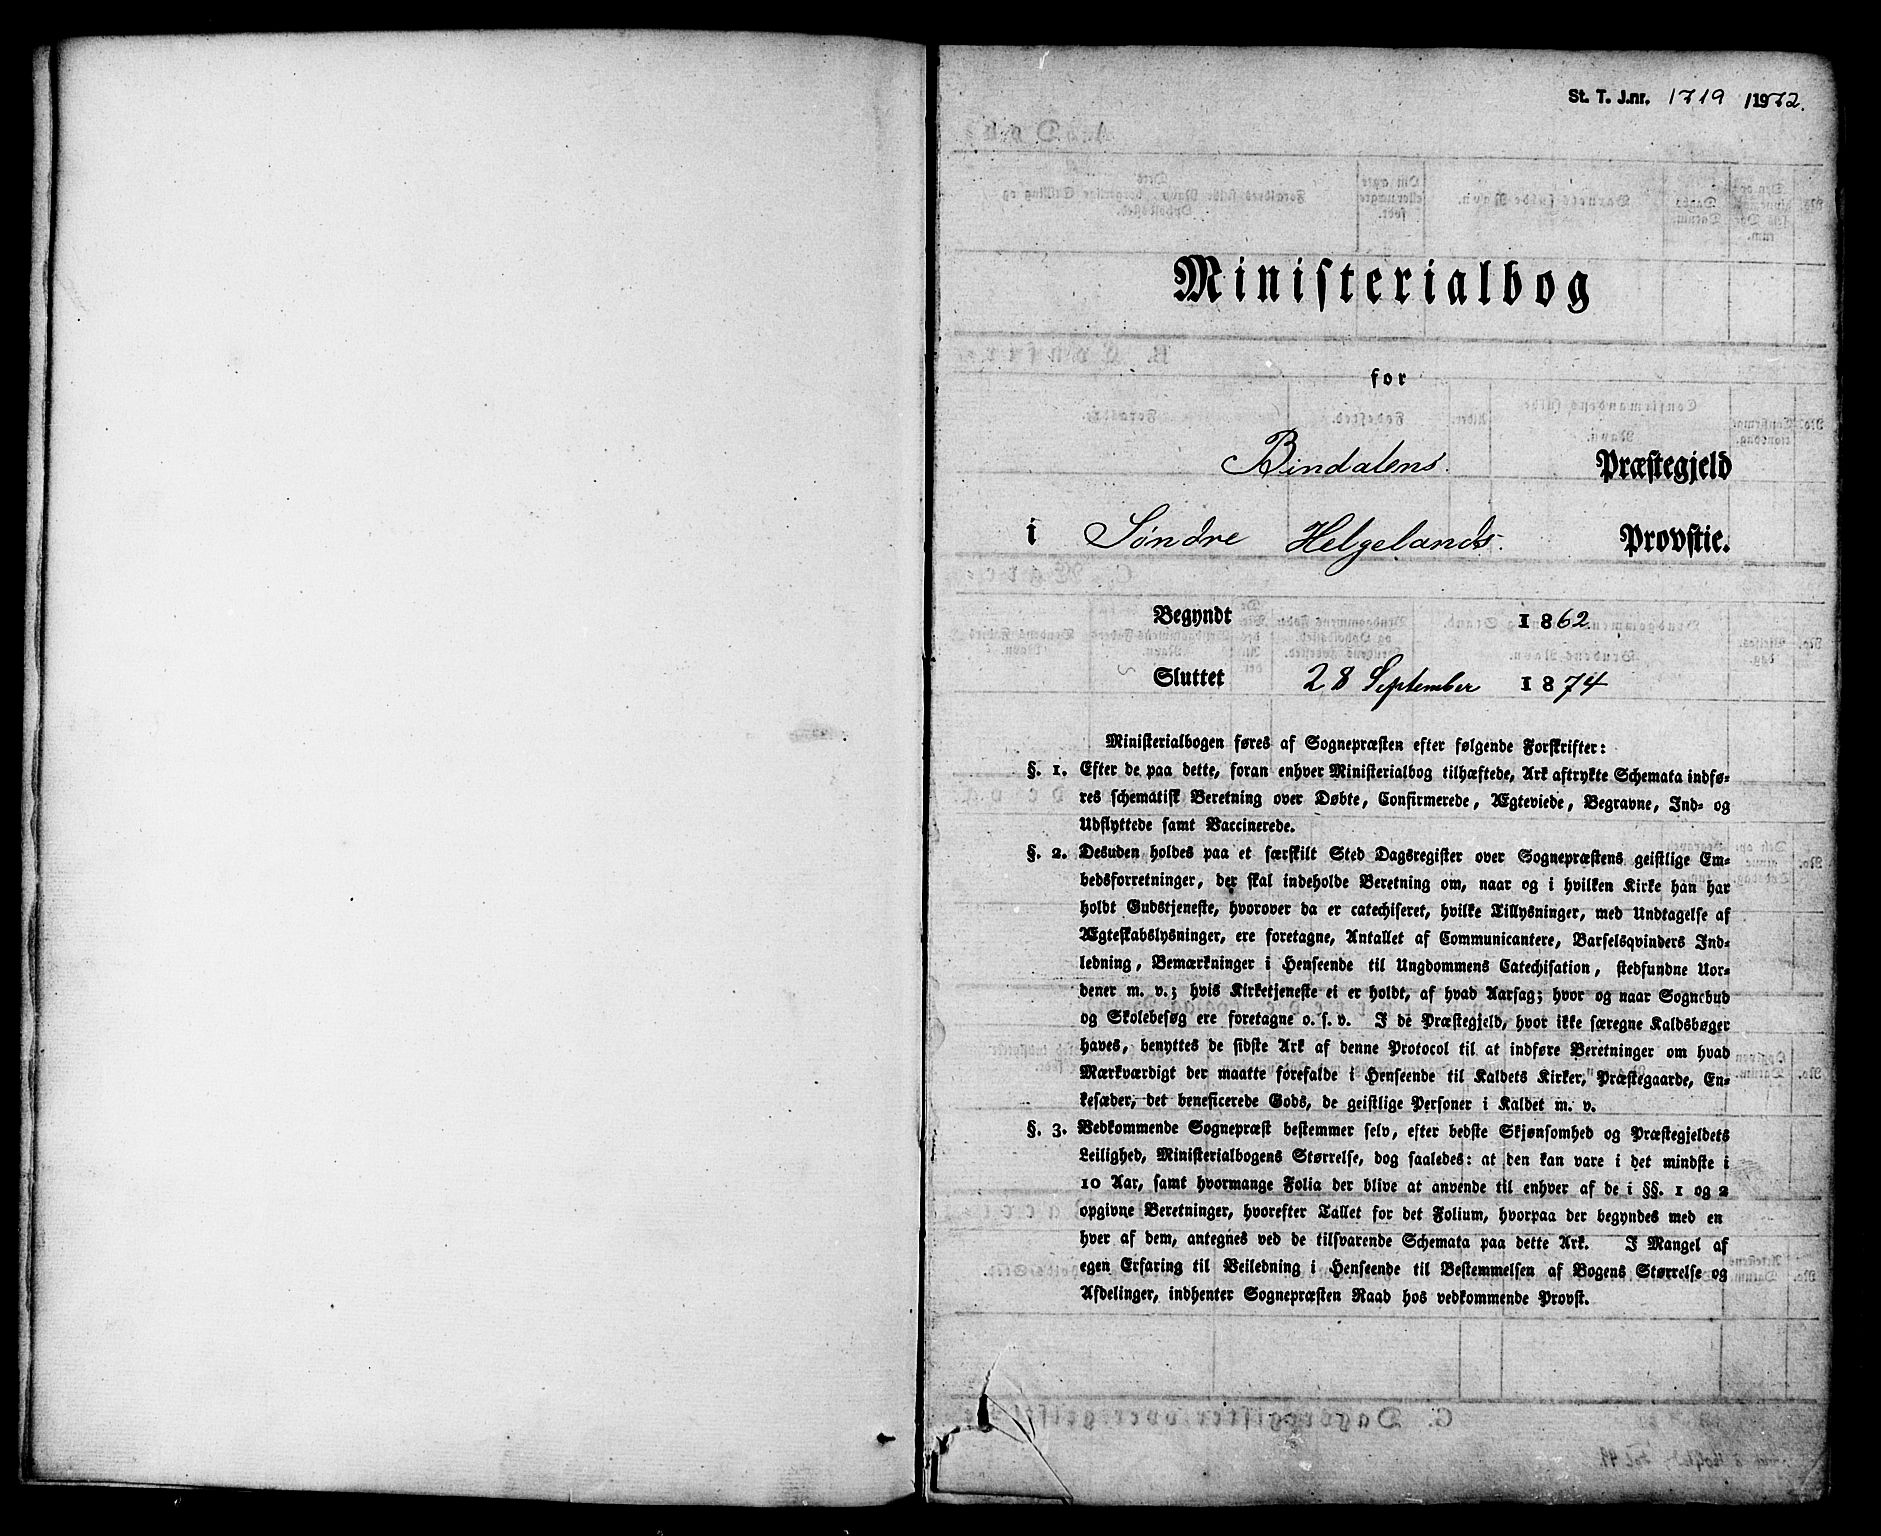 St. T. J.nr. 1719 /1972.
Ministerialbog
for
Bindalens Præstegjeld
i Søndre Helgelands Provstie.
Begyndt 1862.
Sluttet 28 September 1874
Ministerialbogen føres af Sognepræsten efter følgende Forskrifter:
§. 1. Efter de paa dette, foran enhver Ministerialbog tilhæftede, Ark aftrykte Schemata indfø-
res schematisk Beretning over Døbte, Confirmerede, Ægteviede, Begravne, Ind- og
Udflyttede samt Vaccinerede.
§. 2. Desuden holdes paa et færskilt Sted Dagsregister over Sognepræstens geistlige Em-
bedsforretninger, der skal indeholde Beretning om, naar og i hvilken Kirke han har
holdt Gudstjeneste, hvorover da er catechiseret, hvilke Tillysninger, med Undtagelse af
Ægteskabslysninger, ere foretagne, Antallet af Communicantere, Barselsqvinders Ind-
ledning, Bemærkninger i Henseende til Ungdommens Catechisation, stedfundne Uor-
dener m. v.; hvis Kirketjeneste ei er holdt, af hvad Aarsag; hvor og naar Sognebud
og Skolebesøg ere foretagne o. s. v. I de Præstegjeld, hvor ikke særegne Kaldsbøger
haves, benyttes de sidste Ark af denne Protocol til at indføre Beretninger om hvad
Mærkværdigt der maatte forefalde i Henseende til Kaldets Kirker, Præstegaarde, En-
kesæder, det beneficerede Gods, de geistlige Personer i Kaldet m. v.
§. 3. Vedkommende Sognepræst bestemmer selv, efter bedste Skjønsomhed og Præstegjeldets
Leilighed, Ministerialbogens Størrelse, dog saaledes: at den kan vare i det mindste i
10 Aar, samt hvormange Folia der blive at anvende til enhver af de i §§. 1 og 2
opgivne Beretninger, hvorefter Tallet for det Folium, hvorpaa der begyndes med en
hver af dem, antegnes ved de tilsvarende Schemata paa dette Ark. I Mangel af
egen Erfaring til Veiledning i Henseende til Bestemmelsen af Bogens Størrelse og
Afdelinger, indhenter Sognepræsten Raad hos vedkommende Provst.